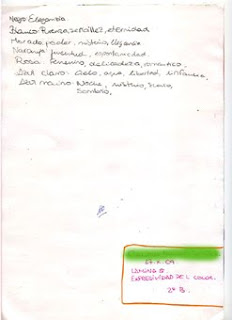 Negro Elegancia
Blanco Pureza, sencillez, eternidad
Morado poder, misterio, elegancia
Naranja juventud, espontaneidad
Rosa femenino, delicadeza, romántico.
Azul claro: cielo, agua, libertad, infancia
Azul marino: Noche, misterio, lluvia
Sombrío,
LAMINA 8
EXPRESIVIDAD DEL COLOR.
2º B.